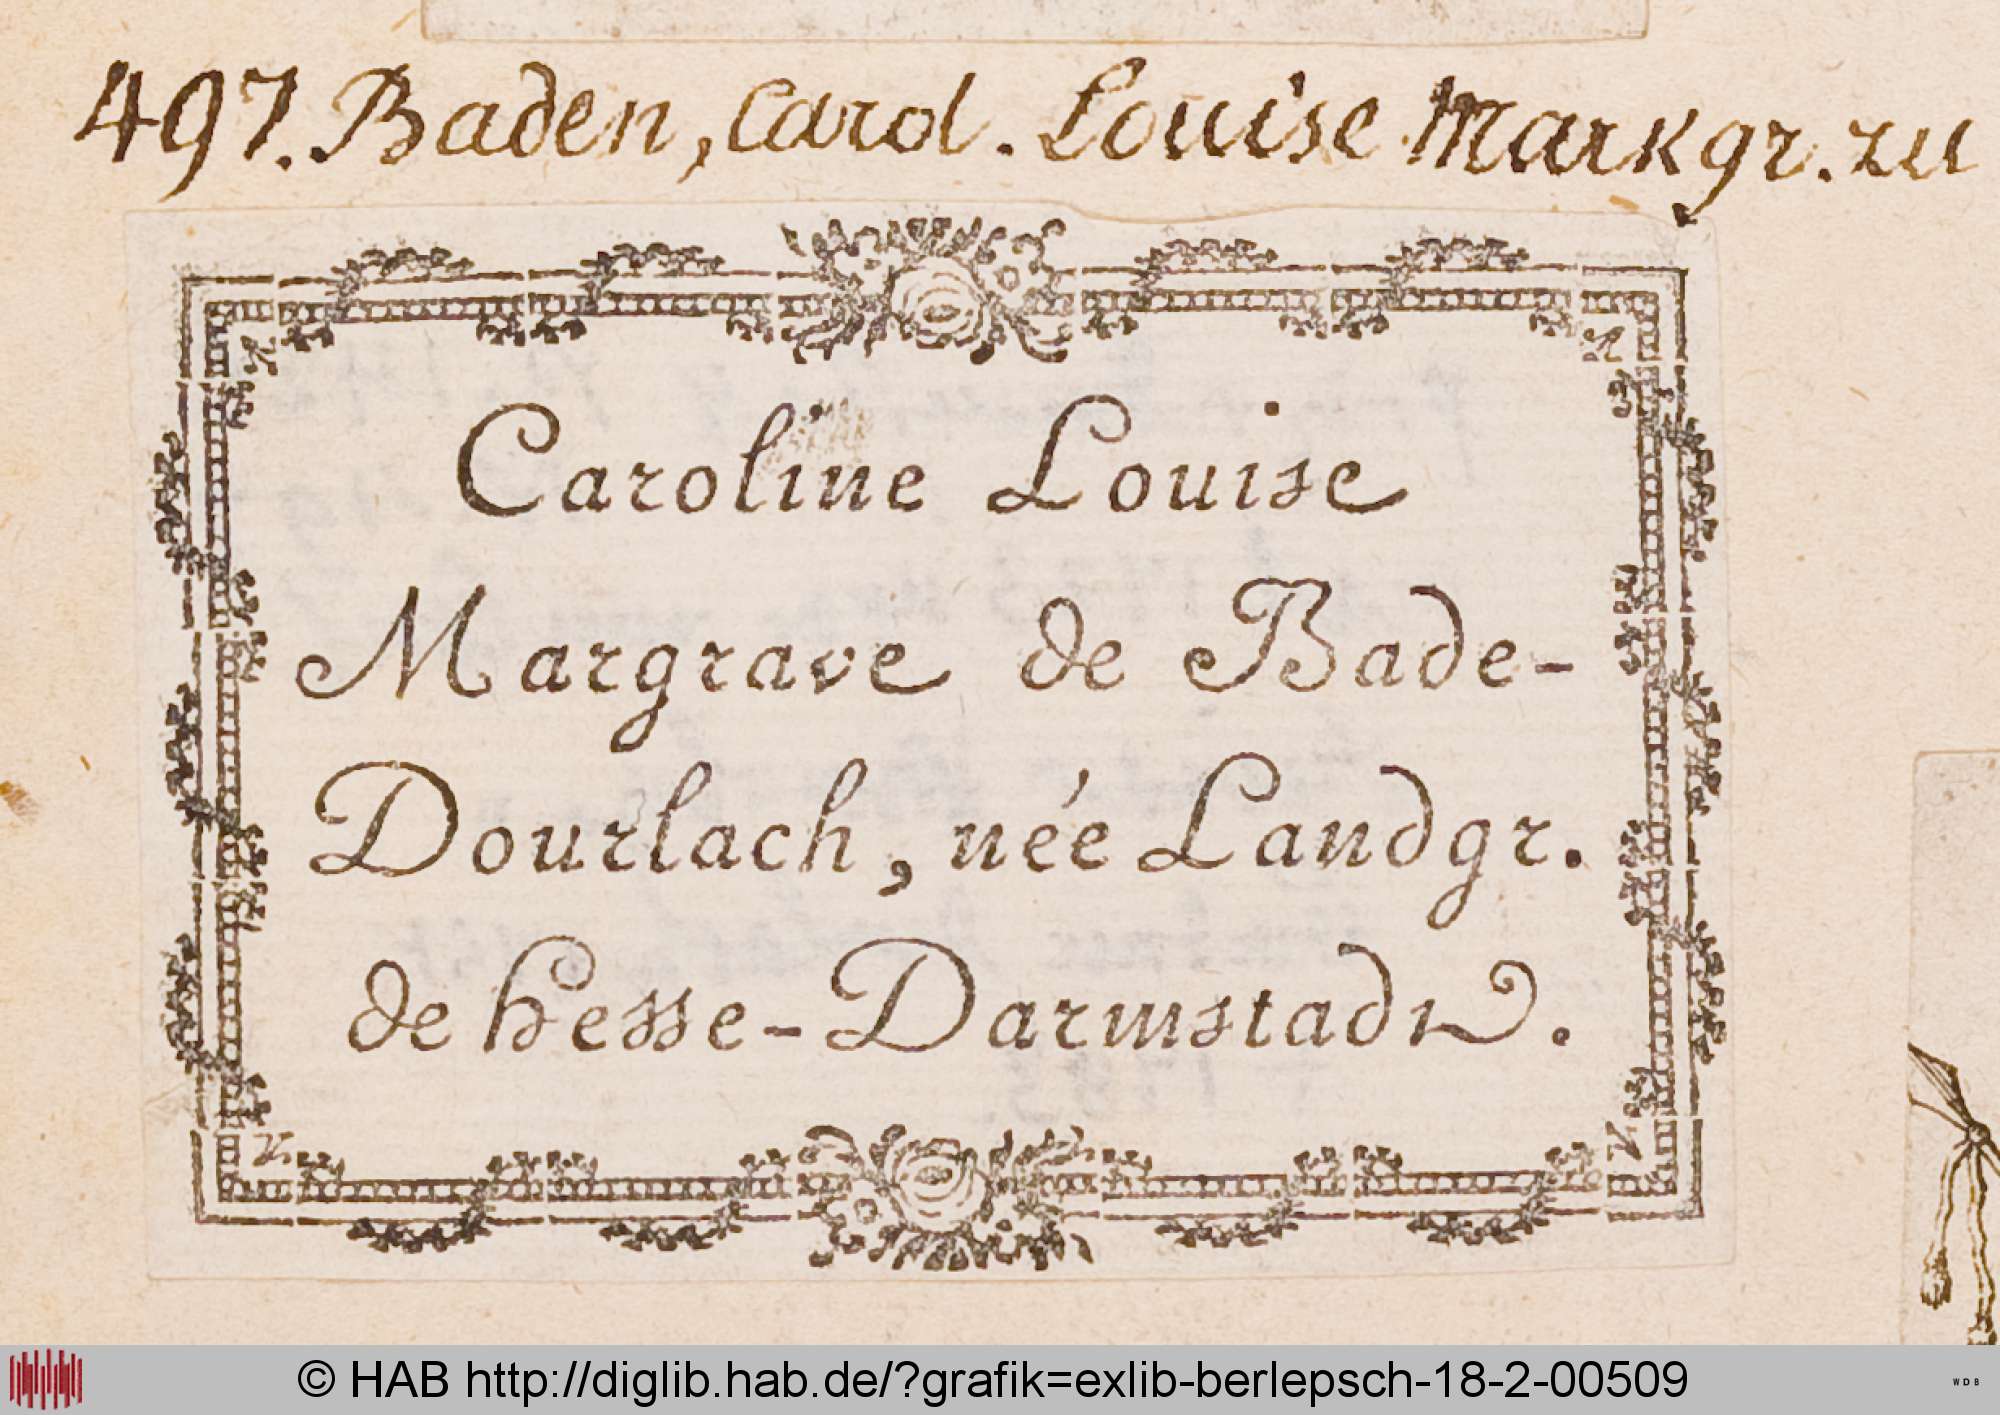 497. Baden, Carol. Louise Markgr. zu
Caroline Louise
Margrave de Bade-
Dourlach, née Landgr.
de Hesse-Darmstadt.
© HAB http://diglib.hab.de/?grafik=exlib-berlepsch-18-2-00509
WDB